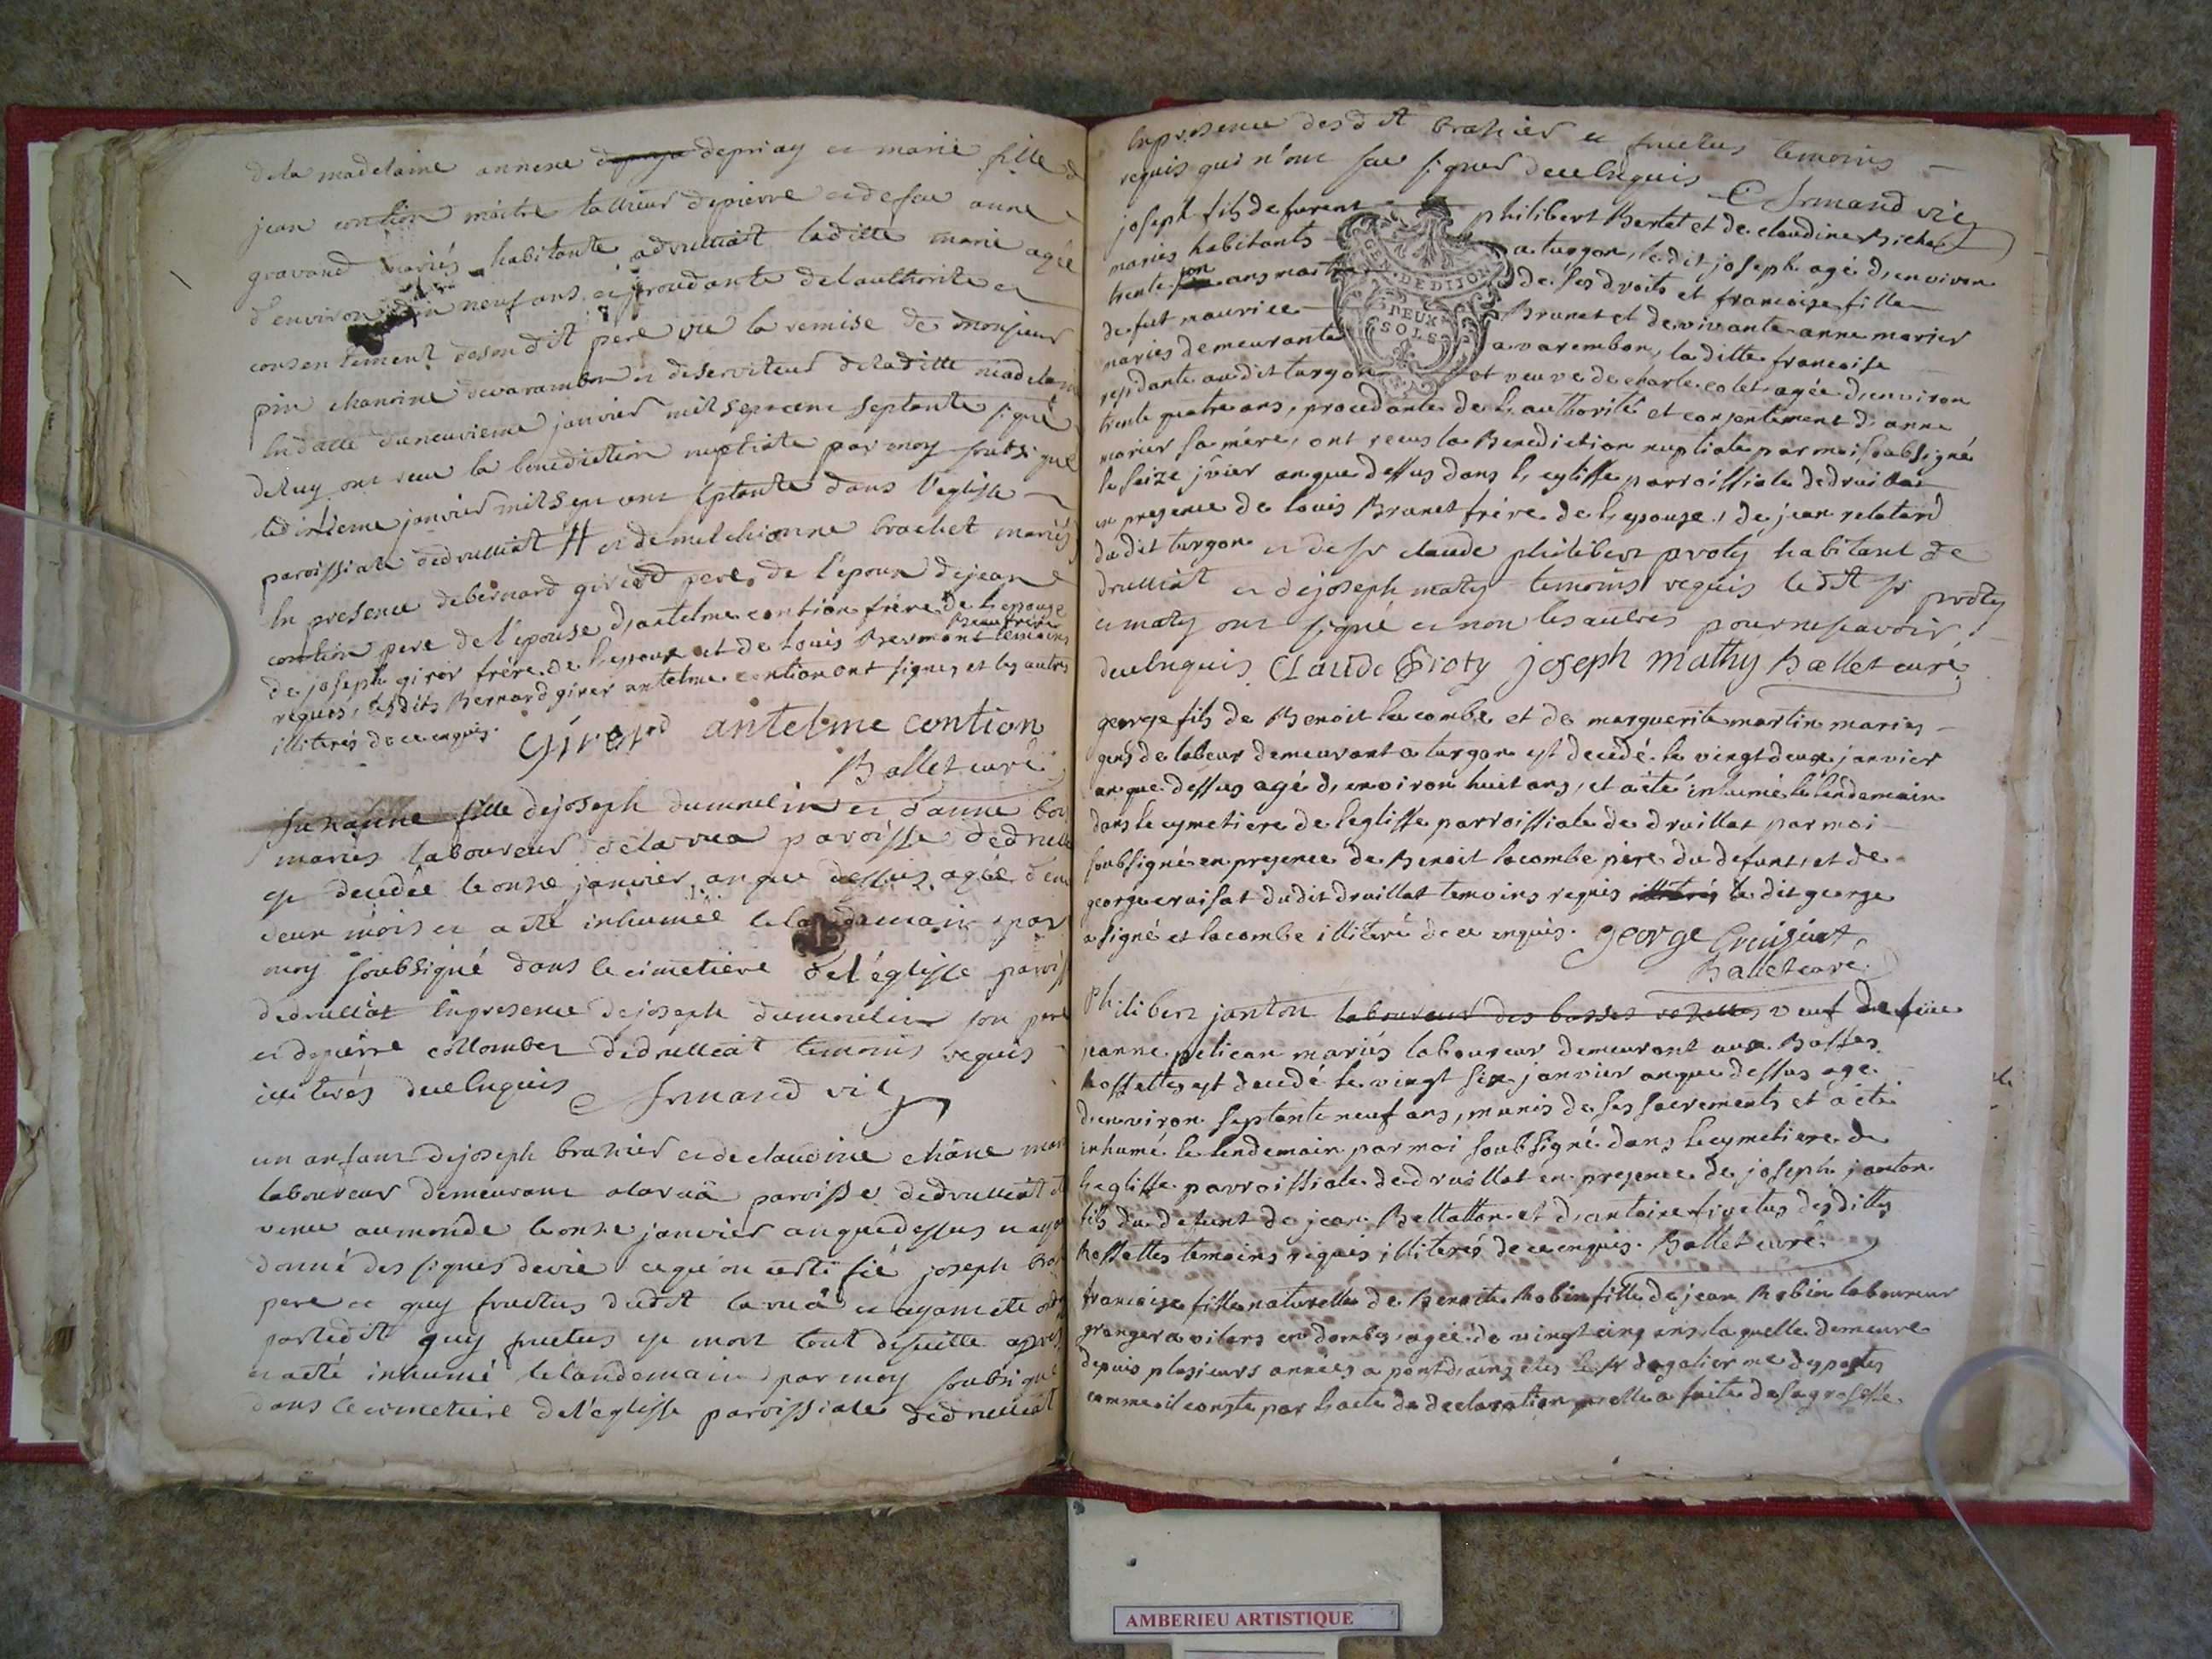 de la madelaine annexe depriay et marie fille d
jean contion maitre tallieur depierre et defeu anne
gravand mariés habitante adrulliat laditte marie agée
d'environ neuf ans et proudante delauthorite et
consentement desondit pere vû la remise de monsieur
pin chanoine devarambon et deserviteur deladitte madelaine
en datte duneuvieme janvier mil sept cent septante signé
deluy ont receu la benediction nuptiale par moy soubsigné
ledixieme janvier mil sept cent septante dans l'eglisse
paroissiale dedrulliat # et demelchionne brachet mariés
en presence debernard girerd pere de l'epoux dejean
contion pere de l'epouse d'antelme contion frére de l'epouse
de joseph girer frére de l'epoux et de louis Bermont Beau frére temoins
requis, lesdits Bernard girer antelme contion ont signés et les autres
illiterés de ce enquis. Girerd antelme contion
Ballet curé
suzanne fille dejoseph dumoulin et d'anne bou
mariés laboureur delarua paroisse dedrulli
est decedée leonze janvier an que dessus agée d'env
deux mois et a eté inhumée le landemain par
moy soubsigné dans lecimetière del'églisse paroiss
dedrulliat enpresence dejoseph dumoulin son pere
et depierre collomber dedrulliat temoins requis
illiterés deceenquis Armand vic
un anfant dejoseph brazier et declaudine chàne mari
laboureur demeurant alaruä paroisse dedrulliat est
venu aumonde leonze janvier anquedessus et ayant
donné des signes devie cequ'on certifié joseph braz
pere et guy fructus dudit laruä et ayant eté ond
parledit guy fructus est mort tout desuitte apres
et aeté inhumé lelandemain par moy soubsigné
dans lecimetiere del'eglisse paroissiale dedrulliat
en presence desdit brazier et fructus temoins
requis qui n'ont sceu signer deceenquis Armand vic
joseph fils de furent philibert Berlet et de claudine Michel
mariés habitants a turgon, le dit joseph agé d'environ
trente ans maitre de ses droits et francoise fille
de fut maurice Brunet et de vivante anne marier
mariés demeurants a varembon, la ditte francoise
residante audit turgon et veuve de charle colet agée d'environ
trente quatre ans, procedante de l'authorité et consentement d'anne
marier sa mére, ont recus la Benediction nuptiale par moi soubsigné
le seize jñvier an que dessus dans l'eglisse parroissiale dedruillat
en presence de louis Brunet frére de l'epouse, de jean relatend
dudit turgon et de sr claude philibert proty habitant de
drulliat et dejoseph maty temoins requis ledit sr proty
et maty ont signé et non lesautres pournescavoir
deceenquis Claude Proty joseph mathy Ballet curé
george fils de Benoit lacombe et de marguerite martin mariés
gens de labeur demeurant a turgon est decedé le vingt deux janvier
an que dessus agé d'environ huit ans, et a été inhumé le lendemain
dans le cymetiere de l'eglisse parroissiale de druillat par moi
soubsigné en presence de Benoit lacombe pére du defunt, et de
george craisat dudit druillat temoins requis illiterés le dit george
a signé et lacombe illiteré de ce enquis. george Cruisiat
Ballet curé
Philibert janton laboureur des basses rozettes veuf de feüe
jeanne pelican mariés laboureur demeurant aux Basses
Rossettes est decedé le vingt six janvier an que dessus agé
d'environ septante neuf ans, munis de ses sacrements et a été
inhumé le lendemain par moi soubsigné dans le cymetiere de
l'eglisse parroissiale dedruillat en presence de joseph janton
fils du defunt de jean Bellatton et d'antoine fructus desdittes
Rossettes temoins requis illiterés de ce enquis. Ballet curé
francoise fille naturelle de Benoite Robin fille de jean Robin laboureur
granger a vilars en dombes agée de vingt cinq ans laquelle demeure
depuis plusieurs années a pontd'ains chés le sr
comme il conste par l'acte de declaration qu'elle a faite desa grossesse
GEN. DE DIJON
DEUX
SOLS
AMBERIEU ARTISTIQUE